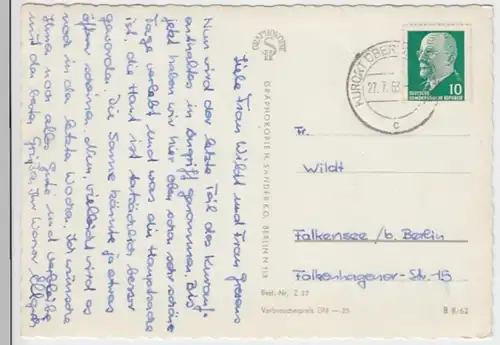 Liebe Frau Wildt und Frau
Nun wird der letzte Teil des Kurauf-
enthaltes in Angriff genommen. Bis
jetzt haben wir hier oben schon sehr schöne
Tage verlebt und was die Hauptsache
ist, die Haut ist tatsächlich besser
geworden. Die Sonne könnte etwas
öfter scheinen. Aber vielleicht wird es
noch in der letzten Woche. Ich wünsche
Ihnen noch alles Gute und verbleibe
mit den besten Grüßen Ihr Werner
GRAPHOKOPIE
GRAPHOKOPIE H. SANDER K.G. BERLIN N 113
KURORT OBER
27.7.63
c
DEUTSCHE
DEMOKRATISCHE REPUBLIK
10
Fr.
Wildt
Falkensee /b. Berlin
Falkenhagener-Str. 15
Best. Nr. Z 27
Verbraucherpreis DM —.25
B 8/62